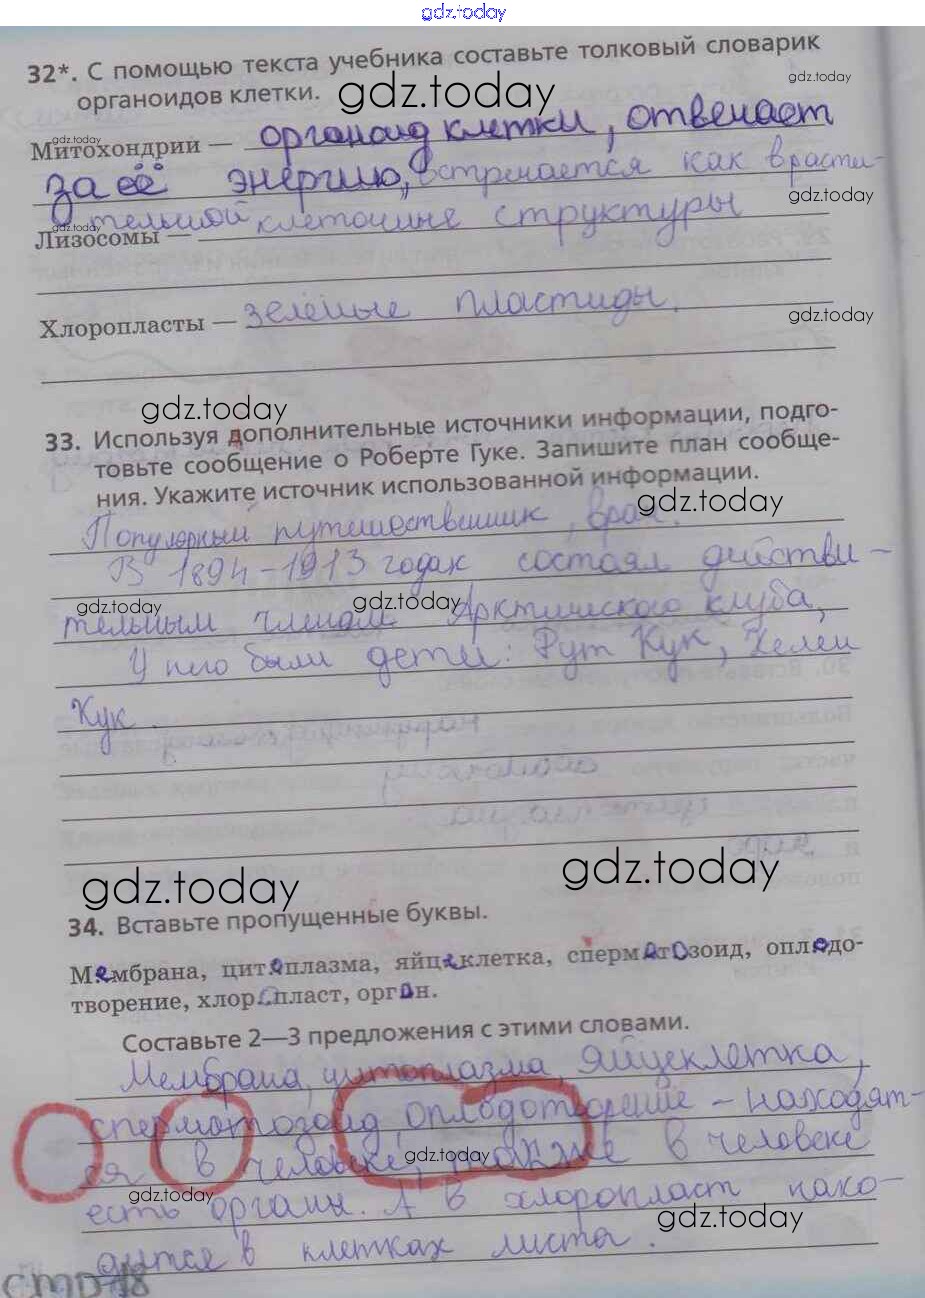 gdz.today
32*. С помощью текста учебника составьте толковый словарик
gdz.today
органоидов клетки. gdz.today
gdz.today
Митохондрии — органоид клетки, отвечает
за её энергию, встречается как в расти-
gdz.today
тельной клеточные структуры
gdz.today
Лизосомы —
Хлоропласты — зелёные пластиды.
gdz.today
gdz.today
33. Используя дополнительные источники информации, подго-
товьте сообщение о Роберте Гуке. Запишите план сообще-
ния. Укажите источник использованной информации.
gdz.today
Популярный путешественник, врач.
В 1894-1913 годах состоял действи-
gdz.today gdz.today
тельным членом Арктического клуба,
У него были дети: Рут Кук, Хелен
Кук
gdz.today gdz.today
34. Вставьте пропущенные буквы.
Мембрана, цитоплазма, яйцеклетка, сперматозоид, оплодо-
творение, хлоропласт, орган.
Составьте 2—3 предложения с этими словами.
Мембрана, цитоплазма, яйцеклетка,
сперматозоид, оплодотворение - находят-
ся в человеке, также в человеке
gdz.today
gdz.today
есть органы. А в хлоропласт нахо-
gdz.today
дится в клетках листа.
стр 18